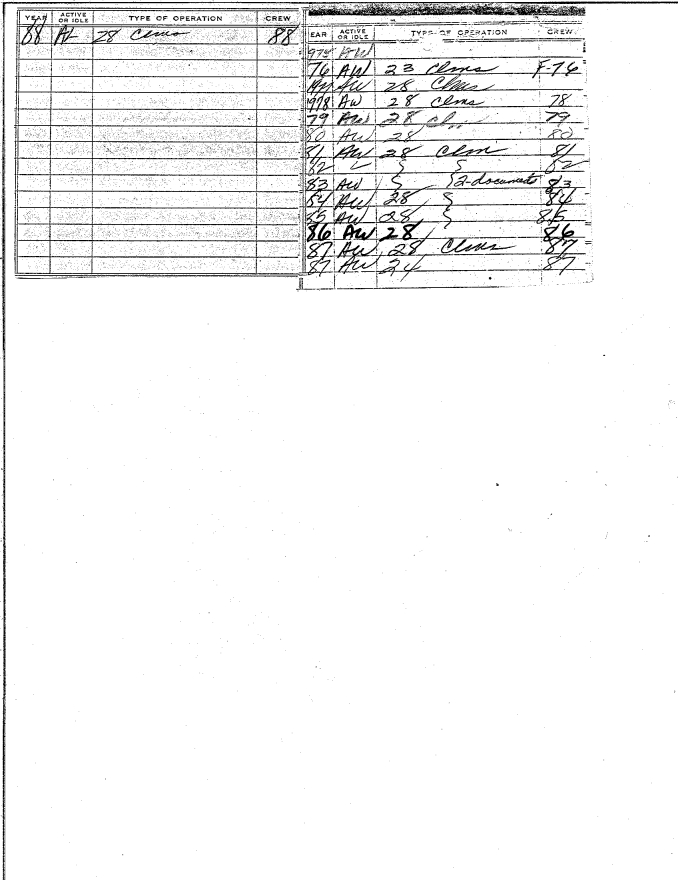 YEAR ACTIVE OR IDLE TYPE OF OPERATION CREW
88 28 Clms 88
EAR ACTIVE OR IDLE TYPE OF OPERATION CREW
975 AW
76 AW 23 Clms F-76
AW 28 Clms
1978 AW 28 Clms 78
79 AW 28 79
80 AW 28 80
81 AW 28 Clm 81
82 82
83 AW 2-documents 83
84 AW 28 84
85 AW 28 85
86 AW 28 86
87 AW 28 Clms 87
87 AW 24 87